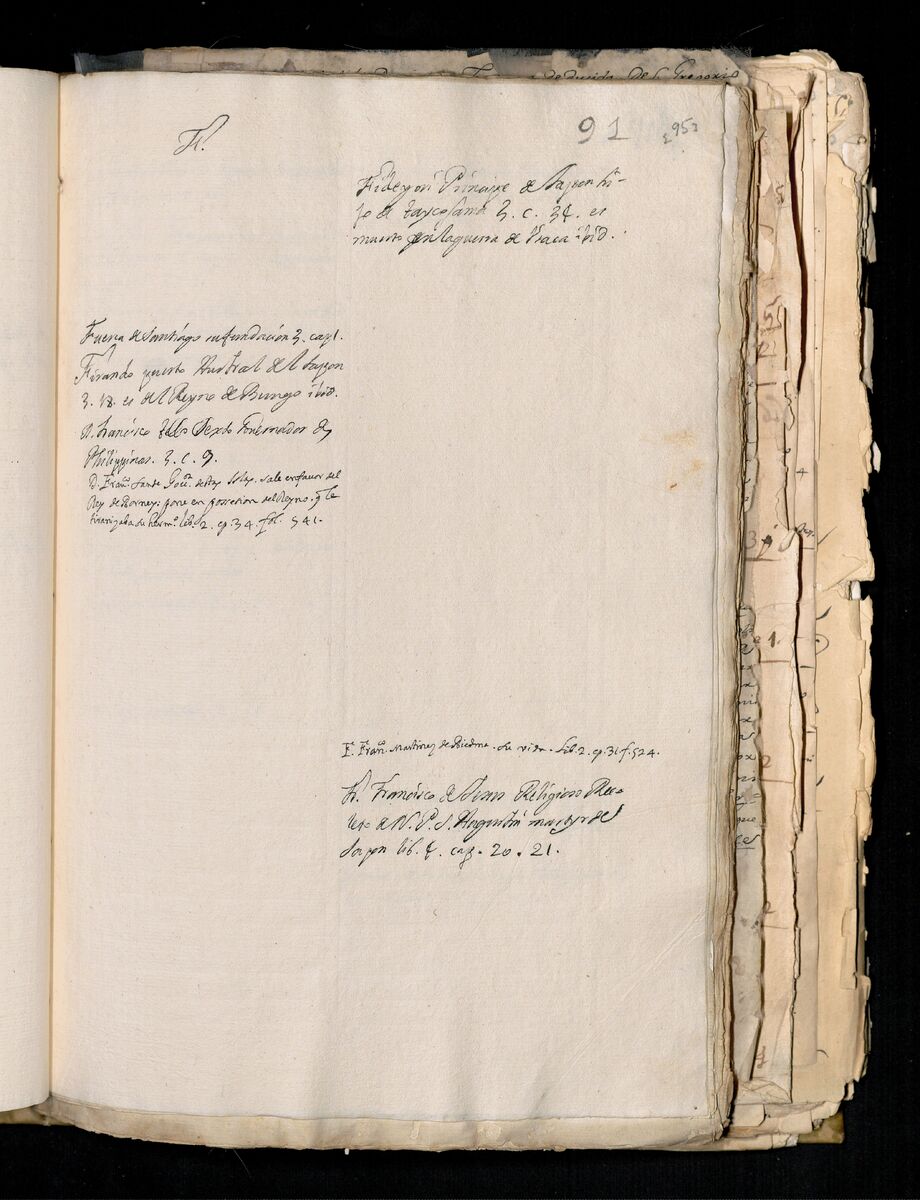 F.
91
95
Fideyori Principe de Iapon hi-
jo de taycosama 3. c. 34. es
muerto en la guerra de Vsaca ibid.
Fuerça de Santiago su fundación 3. cap 1.
Firando puerto Austral del Iapon
3. 18. es del Reyno de Bungo ibid.
D. Francisco tello Sexto Gouernador de
Philippinas. 3. c. 9.
D. Franco. Sande Gor. destas Islas. sale en favor del
Rey de Borney: pone en possesion del Reyno. q le
tiranizaba su hermo. lib. 2. cp. 34. fol. 541.
F. Franco. Martinez de Biedma. su vida. Lib. 2. cp. 31 f. 524.
Fr. Francisco de Jesus Religioso Reco-
leto de N. P. S. Augustin martyr del
Iapon lib. 4. cap. 20. 21.